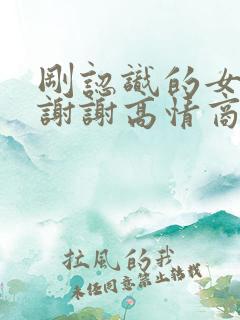 剛認識的女
謝謝高情商
拉風的我
未经同意禁止转载